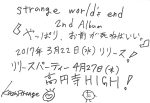 strange world's end
2nd Album
『やっぱり、お前が死ねばいい』
2017年3月22日(水)リリース!
リリースパーティー 4月27日(木)
高円寺HIGH!